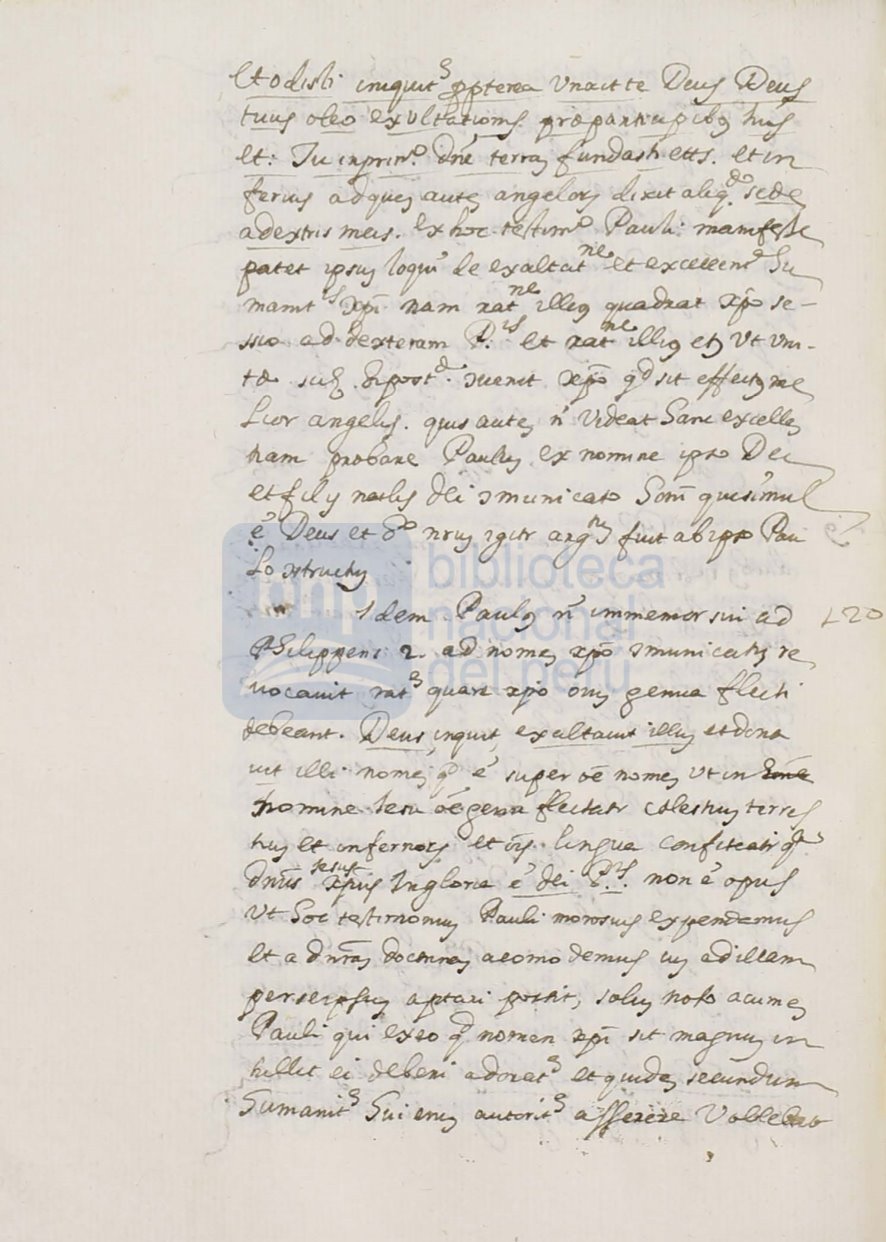 et odisti iniquit^e ppterea Unxit te Deus Deus
tuus oleo exultationis præ participibq tuis
et: Tu in prinº dñe terra, fundasti etts. et in
ferius ad quem aute angelorũ dixit aliq^do sede
a dextris meis. ex hoc testimº Pauli manifeste
patet ipsu loqui de exaltat^ne et excellent^e Hu
manit^is xpi nam rat^ne illiq quadrat xpo se-
ssio ad dexteram P.^is et rat^ne illiq etq ut uni-
tæ hipost^e ɔuenit xpo qd sit effectq me
lior angelis. quis aute ñ videat hanc excelle
tiam probare Paulu ex nomine ipso Dei
et filij natlis dei ɔmunicato homi qui simul
e Deus et hº nrũ igitr arg^m fuit ab ipso Pau
lo ɔstructu
Idem Paulq ñ immemor sui ad
Philippens: 2. ad nome xpo ɔmunicatu re
uocauit rat^e quare xpo om genua flecti
debeant. Deus, inquit, exaltauit illu et dona
uit illi nome q^d e super oe nome ut in
nomine Iesu oe genu flectatr cœlestiu terres
triu et infernorũ et ois lingua confiteatr q^a
dnus Iesus xpus In gloria e dei P.^is. non e opus
Ut hoc testimoniu Pauli morosius expendamus
et ad nrãm doctrina acomodemus cu ad illam
per se ipsu aptari possit, solu noto acume
Pauli qui ex eo q^d nomen xpi sit magnu in
tullit ei deberi adorat^e et quide secundum
humanit^e hui eniq autorit^e asserere
L20
biblioteca
nacional
del perú
bnp